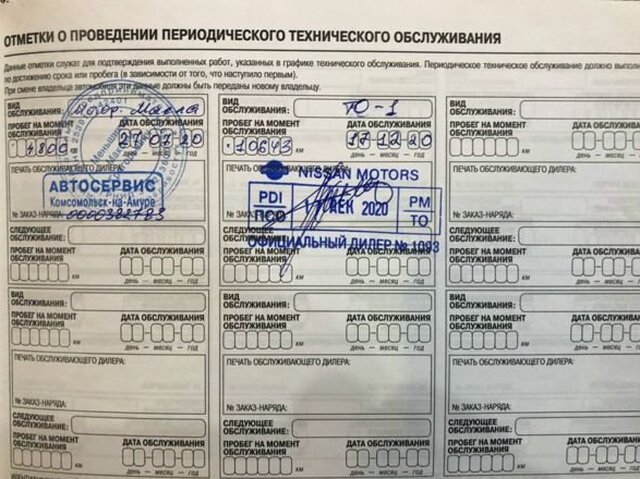 ОТМЕТКИ О ПРОВЕДЕНИИ ПЕРИОДИЧЕСКОГО ТЕХНИЧЕСКОГО ОБСЛУЖИВАНИЯ
Данные отметки служат для подтверждения выполненных работ, указанных в графике технического обслуживания. Периодическое техническое обслуживание должно выполн
по достижению срока или пробега (в зависимости от того, что наступило первым).
При смене владельца автомобиля эти данные должны быть переданы новому владельцу.
ВИД ОБСЛУЖИВАНИЯ: Масла
ПРОБЕГ НА МОМЕНТ ОБСЛУЖИВАНИЯ ДАТА ОБСЛУЖИВАНИЯ
4800 27 07 20
АВТОСЕРВИС
Комсомольск-на-Амуре
№ ЗАКАЗ-НАРЯДА: 0000382783
СЛЕДУЮЩЕЕ ОБСЛУЖИВАНИЕ:
ПРОБЕГ НА МОМЕНТ ОБСЛУЖИВАНИЯ ДАТА ОБСЛУЖИВАНИЯ
км день — месяц — год
ВИД ОБСЛУЖИВАНИЯ: ТО-1
ПРОБЕГ НА МОМЕНТ ОБСЛУЖИВАНИЯ ДАТА ОБСЛУЖИВАНИЯ
10643 17 12 20
км день — месяц — год
ПЕЧАТЬ ОБСЛУЖИВАЮЩЕГО
NISSAN MOTORS
PDI
ПСО
ДЕК 2020
PM
ТО
ОФИЦИАЛЬНЫЙ ДИЛЕР № 1093
ОБСЛУЖИВАНИЕ:
ПРОБЕГ НА МОМЕНТ ОБСЛУЖИВАНИЯ ДАТА ОБСЛУЖИВАНИЯ
км день — месяц — год
ВИД ОБСЛУЖИВАНИЯ:
ПРОБЕГ НА МОМЕНТ ОБСЛУЖИВАНИЯ
км
ПЕЧАТЬ ОБСЛУЖИВАЮЩЕГО
№ ЗАКАЗ-НАРЯДА:
СЛЕДУЮЩЕЕ ОБСЛУЖИВАНИЕ:
ПРОБЕГ НА МОМЕНТ ОБСЛУЖИВАНИЯ
км
ВИД ОБСЛУЖИВАНИЯ:
ПРОБЕГ НА МОМЕНТ ОБСЛУЖИВАНИЯ ДАТА ОБСЛУЖИВАНИЯ
км день — месяц — год
ПЕЧАТЬ ОБСЛУЖИВАЮЩЕГО ДИЛЕРА:
№ ЗАКАЗ-НАРЯДА:
СЛЕДУЮЩЕЕ ОБСЛУЖИВАНИЕ:
ПРОБЕГ НА МОМЕНТ ОБСЛУЖИВАНИЯ ДАТА ОБСЛУЖИВАНИЯ
км день — месяц — год
ВИД ОБСЛУЖИВАНИЯ:
ПРОБЕГ НА МОМЕНТ ОБСЛУЖИВАНИЯ ДАТА ОБСЛУЖИВАНИЯ
км день — месяц — год
ПЕЧАТЬ ОБСЛУЖИВАЮЩЕГО ДИЛЕРА:
№ ЗАКАЗ-НАРЯДА:
СЛЕДУЮЩЕЕ ОБСЛУЖИВАНИЕ:
ПРОБЕГ НА МОМЕНТ ОБСЛУЖИВАНИЯ ДАТА ОБСЛУЖИВАНИЯ
км день — месяц — год
ВИД ОБСЛУЖИВАНИЯ:
ПРОБЕГ НА МОМЕНТ ОБСЛУЖИВАНИЯ
км
ПЕЧАТЬ ОБСЛУЖИВАЮЩЕГО
№ ЗАКАЗ-НАРЯДА:
СЛЕДУЮЩЕЕ ОБСЛУЖИВАНИЕ:
ПРОБЕГ НА МОМЕНТ ОБСЛУЖИВАНИЯ
км